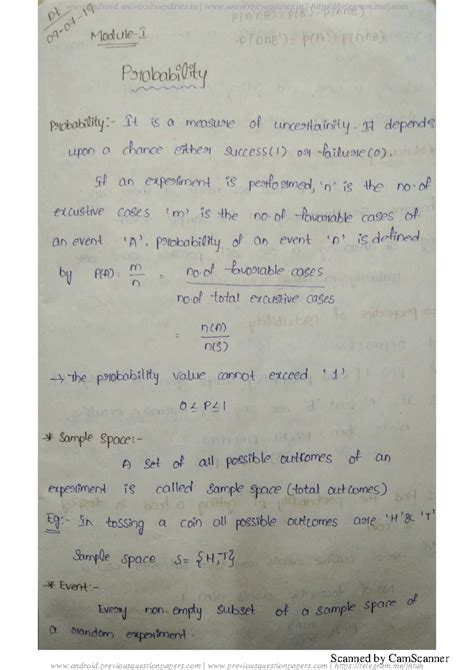 www.android.universityupdates.in | www.universityupdates.in | https://telegram.me/jntuh
Dt
09-07-19
Module-I
Probability
Probability:- It is a measure of uncertainity. It depends
upon a chance either success(1) or failure(0).
If an experiment is performed, 'n' is the no.of
excustive cases 'm' is the no.of favorable cases of
an event 'A'. probability of an event 'A' is defined
by P(A) = m/n = no.of favorable cases / no.of total excustive cases
= n(A)/n(S)
→ The probability value cannot exceed '1'
0 ≤ P ≤ 1
* Sample Space:-
A set of all possible outcomes of an
experiment is called sample space (total outcomes)
Eg:- In tossing a coin all possible outcomes are 'H' & 'T'
Sample space S = {H,T}
* Event:-
Every non-empty subset of a sample space of
a random experiment.
Scanned by CamScanner
www.android.previousquestionpapers.com | www.previousquestionpapers.com | https://telegram.me/jntuh